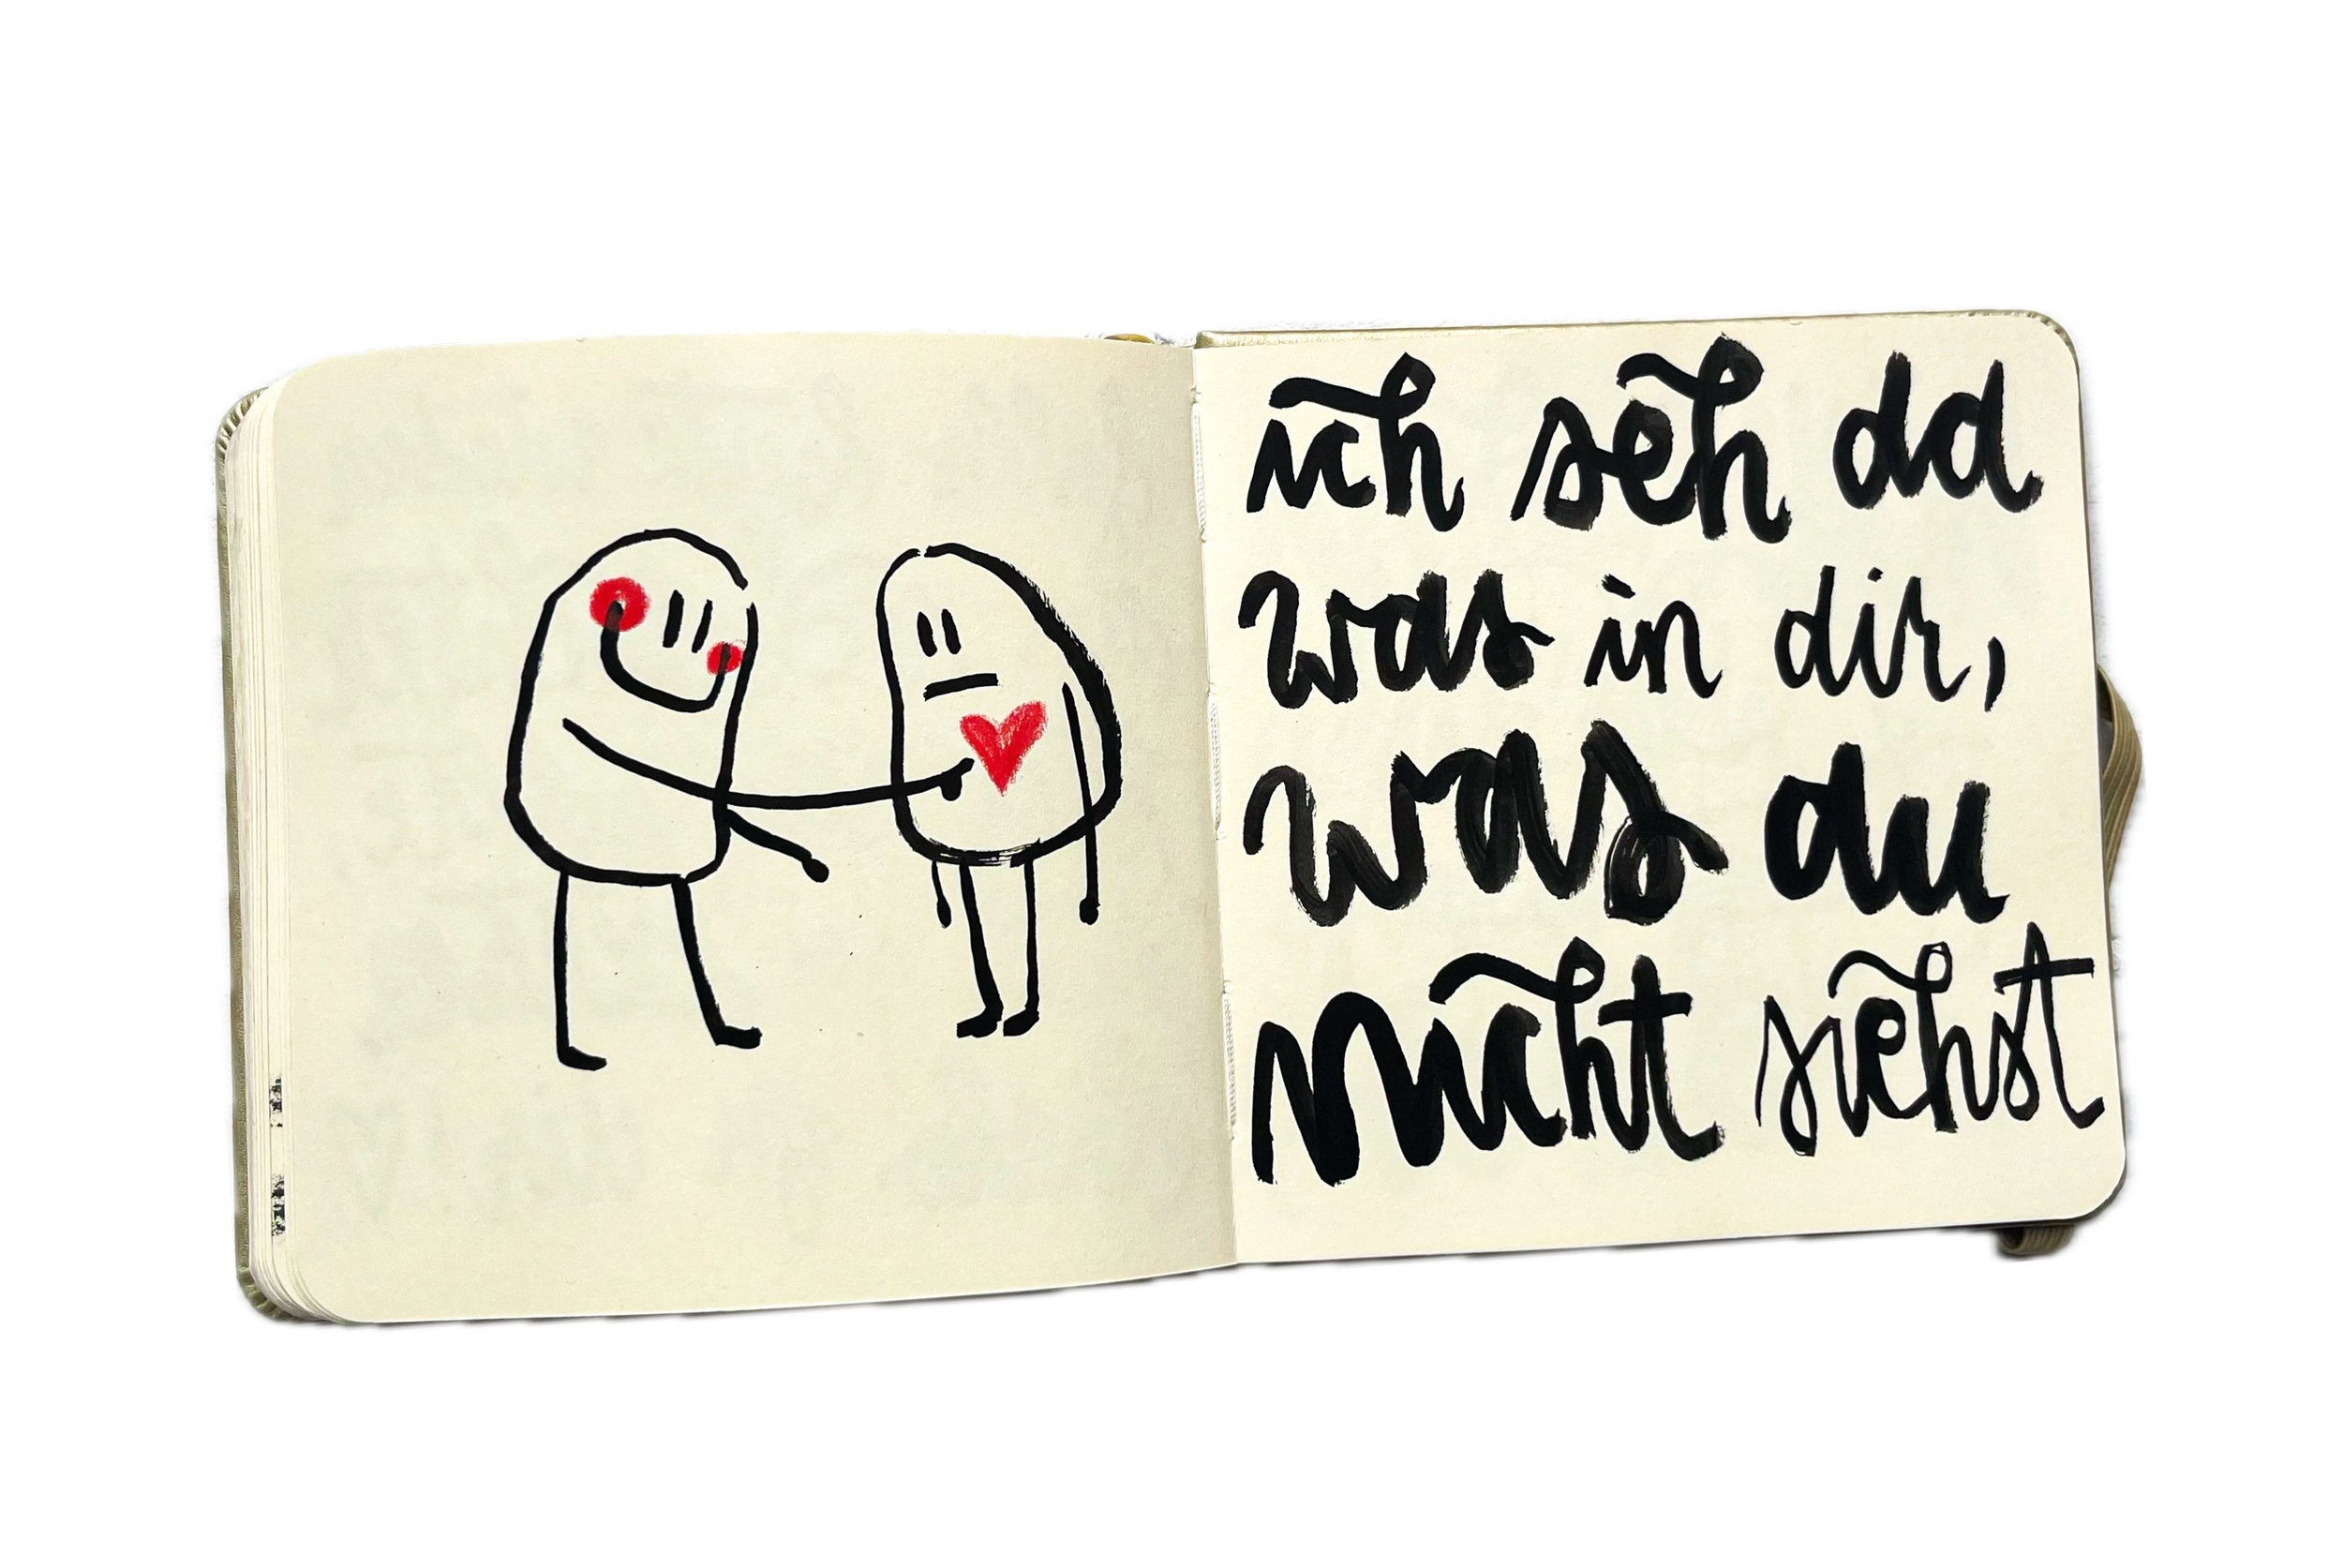 ich seh da
was in dir,
was du
nicht siehst